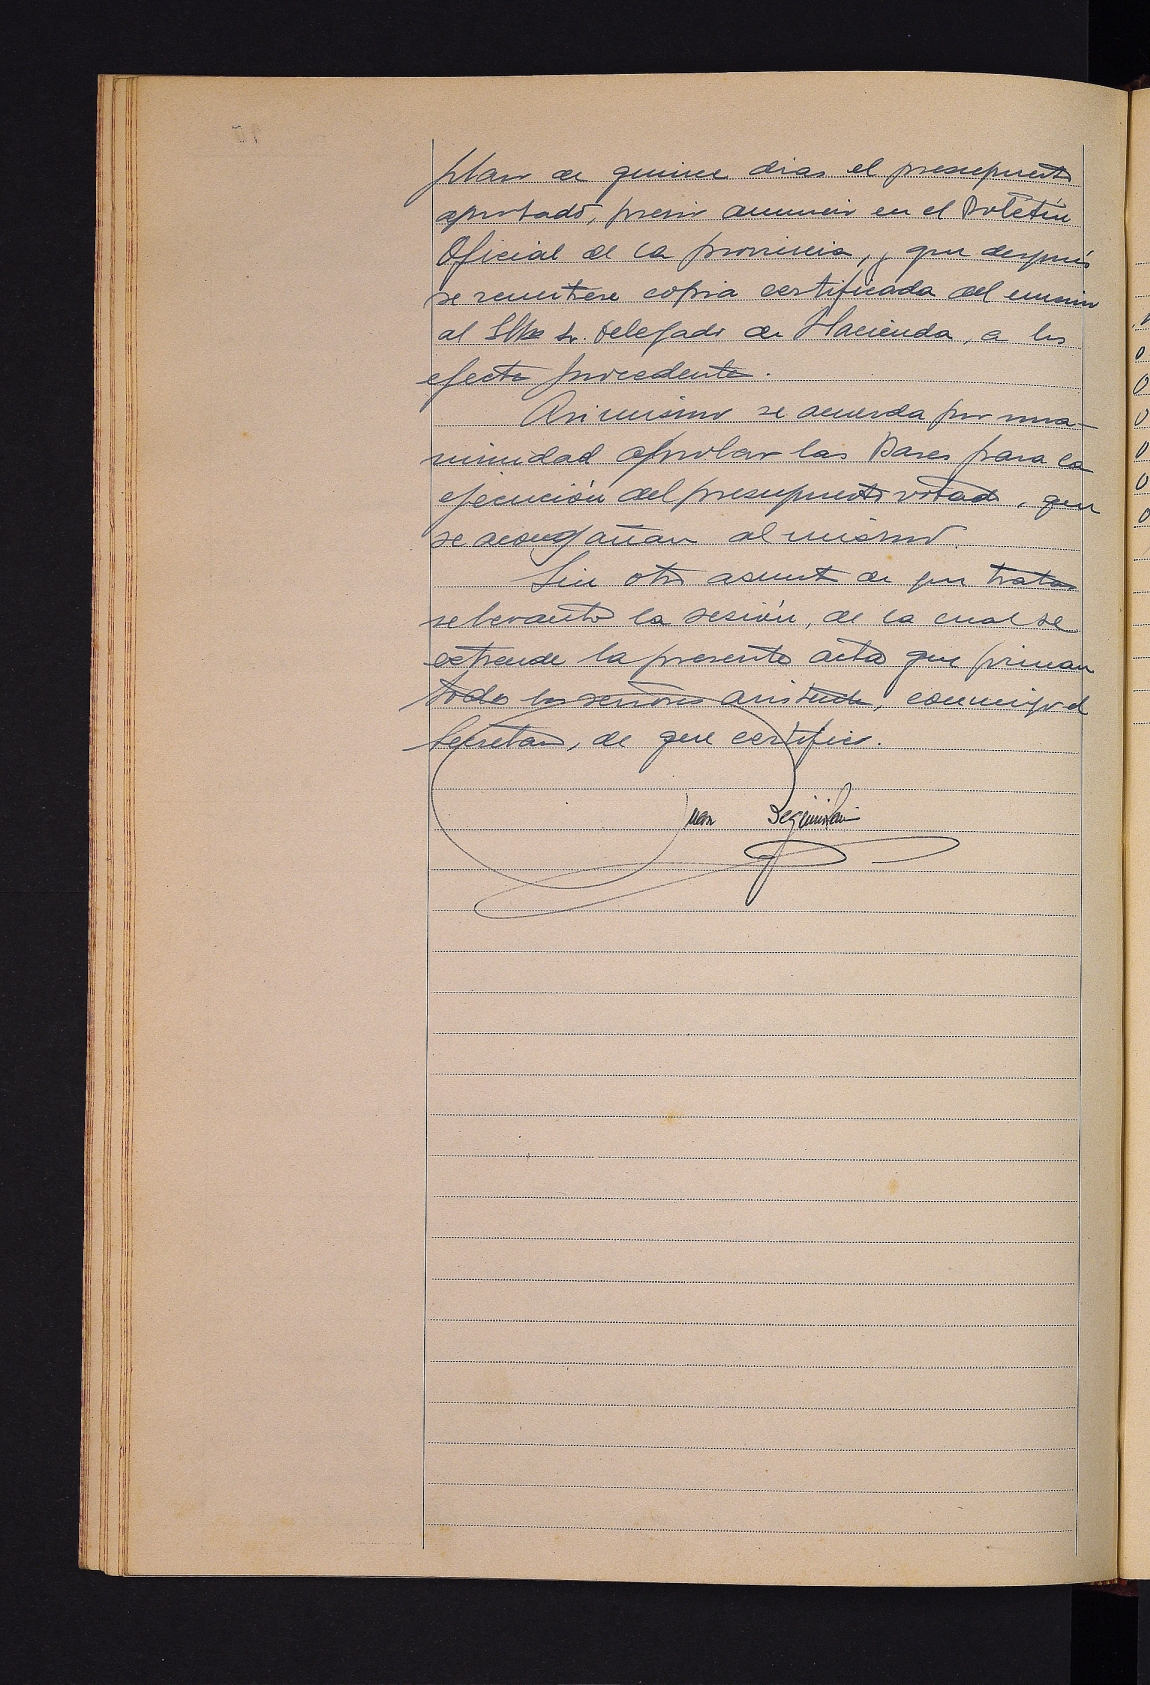 plazo de quince dias el presupuesto
aprobado, previo anuncio en el Boletín
Oficial de la provincia, y que después
se remitiese copia certificada del mismo
al Ilmo Sr. Delegado de Hacienda, a los
efectos procedentes.
Asimismo se acuerda por una-
nimidad aprobar las Bases para la
ejecución del presupuesto votado, que
se acompañan al mismo.
Sin otro asunto de que tratar
se levanto la sesión, de la cual se
extiende la presente acta que firman
todos los señores asistentes, conmigo el
Secretario, de que certifico.
Juan